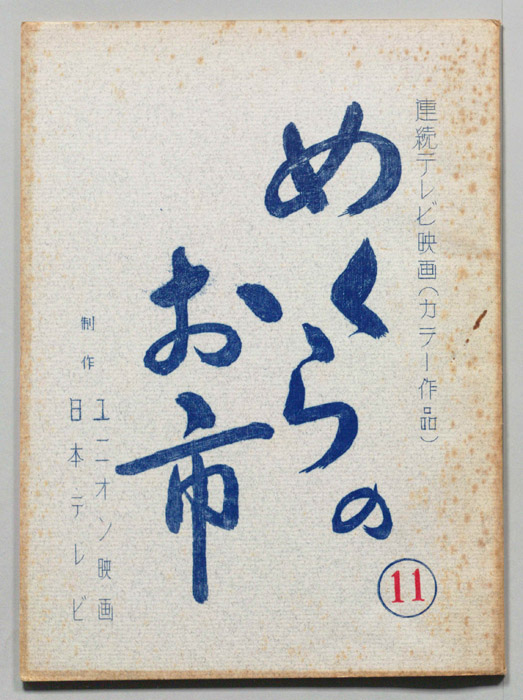 連続テレビ映画(カラー作品)
めくらの
お市
11
制作
ユニオン映画
日本テレビ